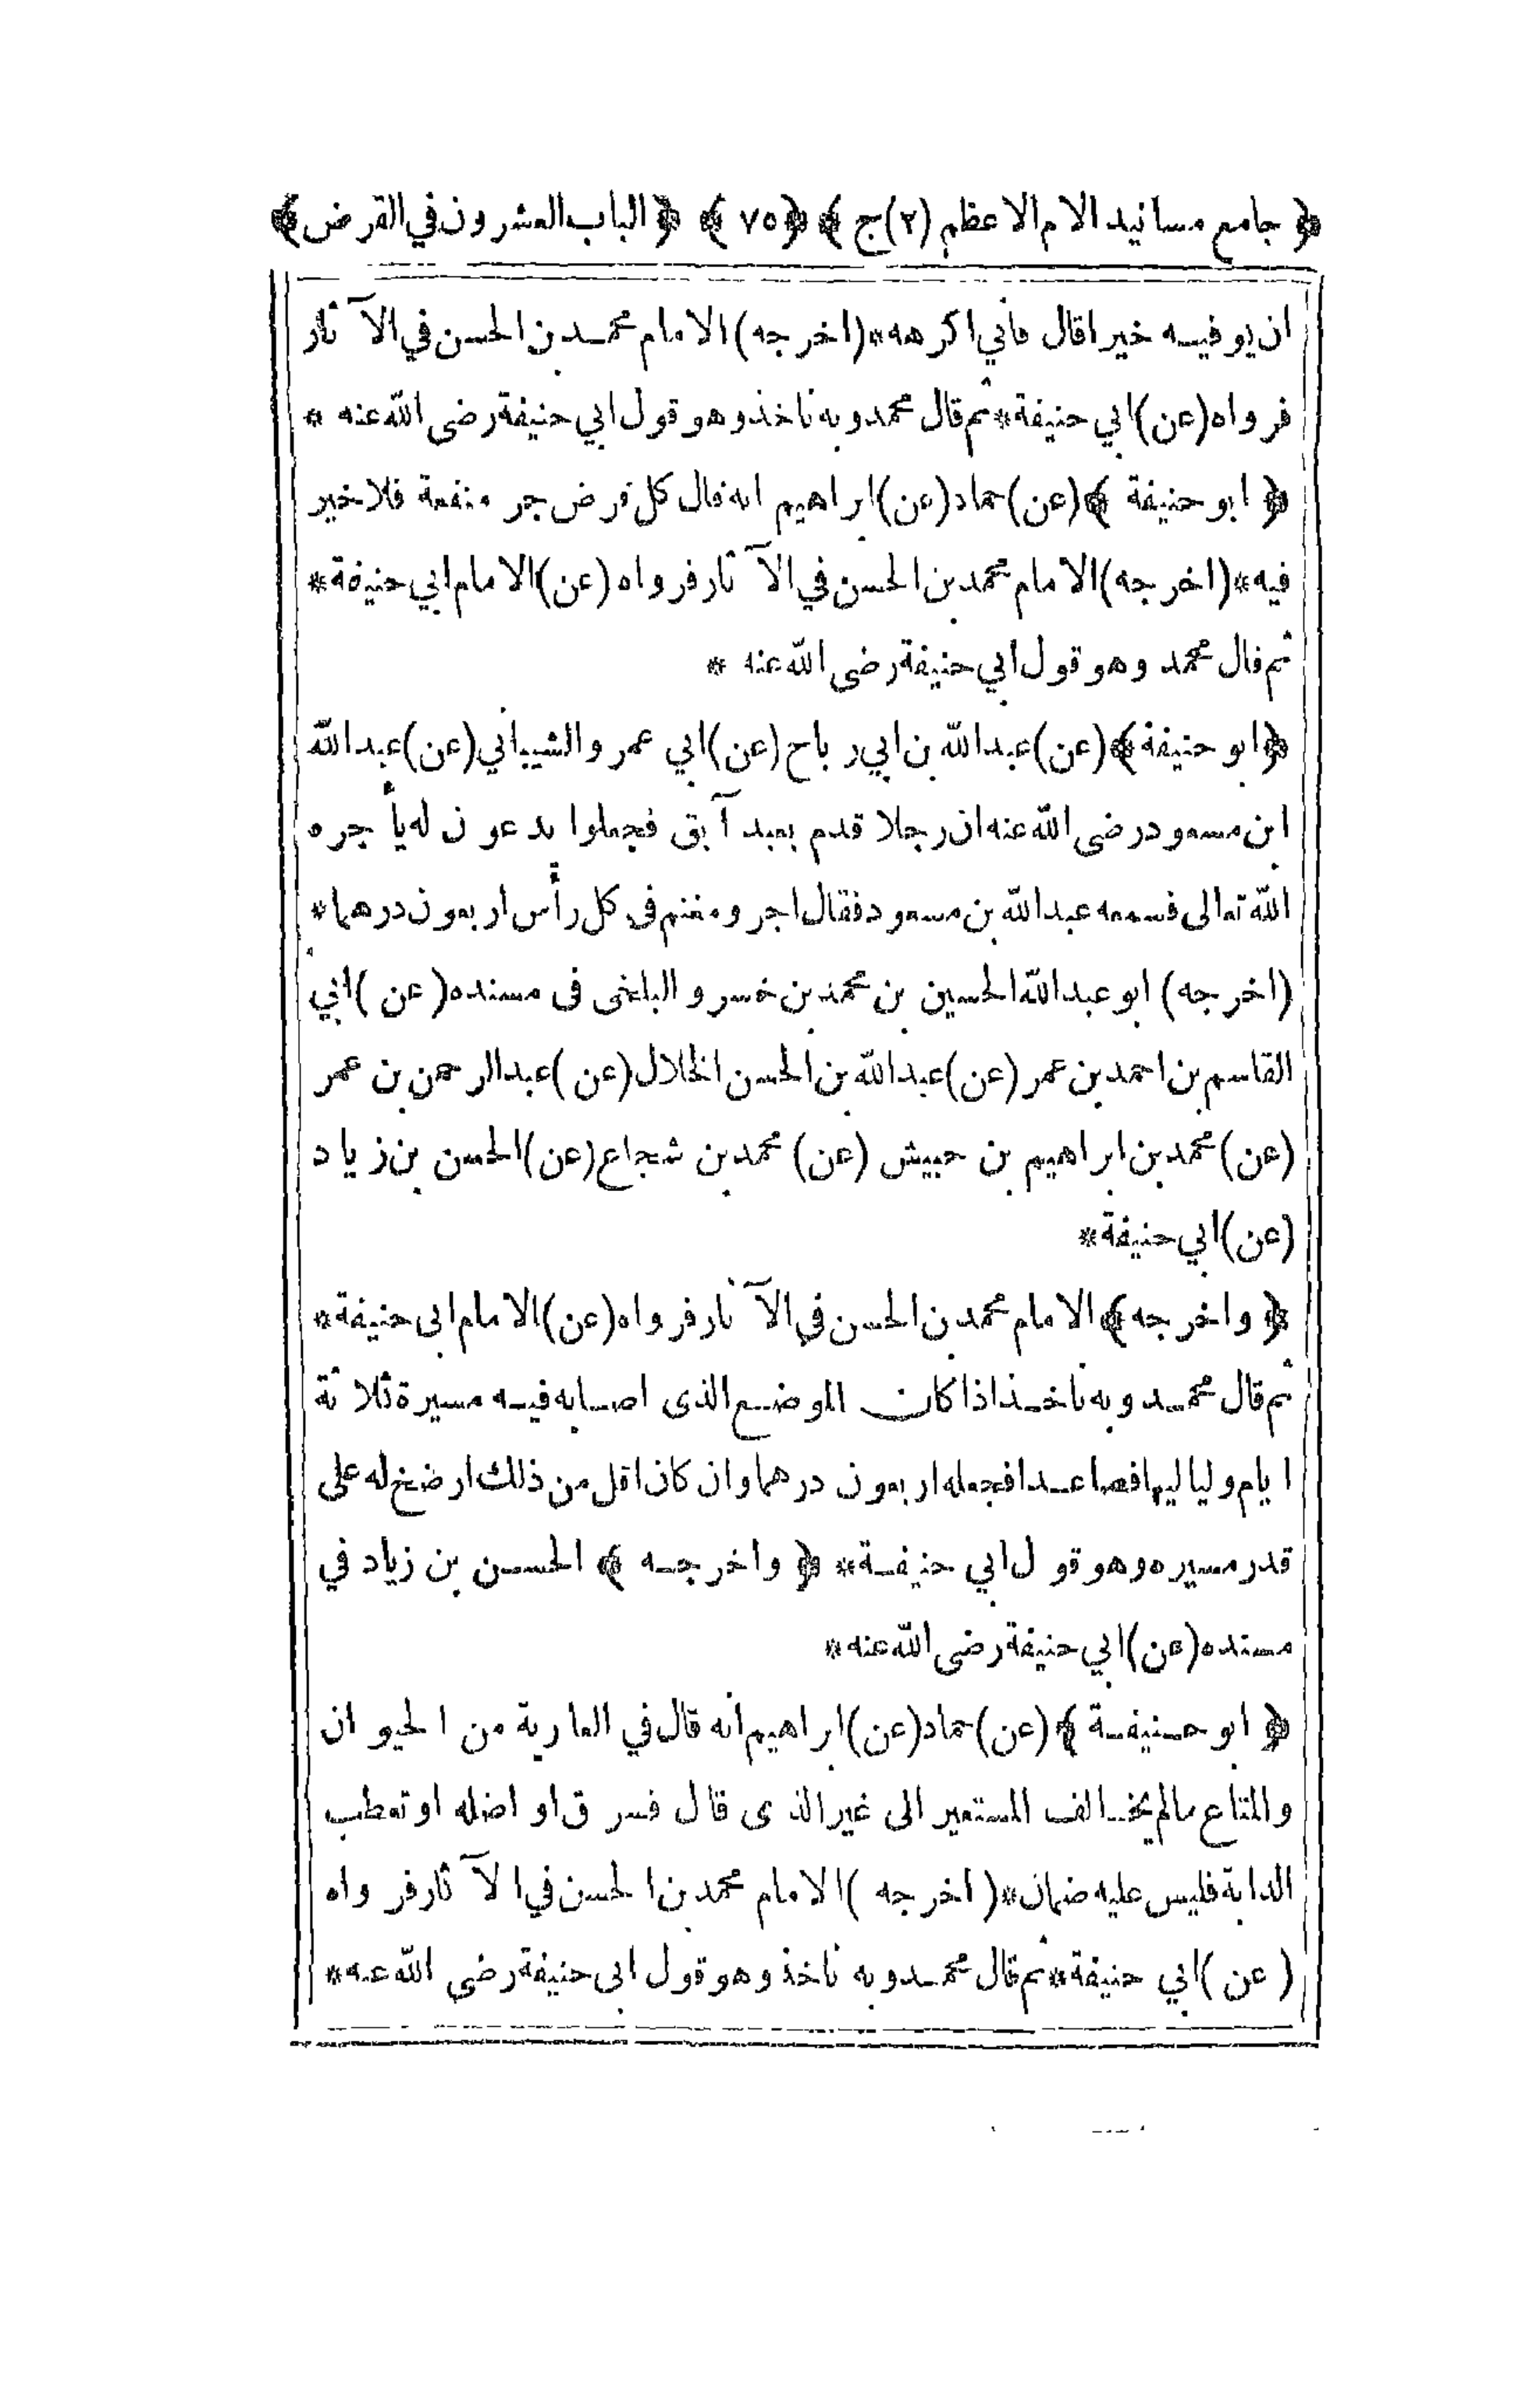 ﴿ جامع مسانيد الام الاعظم (٢) ج ﴾ ﴿ ٧٥ ﴾ ﴿ الباب العشرون في القرض ﴾
ان يوفيه خيرا قال فاني اكرهه * (اخرجه) الامام محمد بن الحسن في الآثار
فرواه (عن) ابي حنيفة * ثم قال محمد وبه ناخذ وهو قول ابي حنيفة رضى الله عنه *
﴿ ابو حنيفة ﴾ (عن) حماد (عن) ابراهيم انه قال كل قرض جر منفعة فلا خير
فيه * (اخرجه) الامام محمد بن الحسن في الآثار فرواه (عن) الامام ابي حنيفة *
ثم قال محمد وهو قول ابي حنيفة رضى الله عنه *
﴿ ابو حنيفة ﴾ (عن) عبد الله بن ابي رباح (عن) ابي عمرو الشيباني (عن) عبد الله
ابن مسعود رضى الله عنه ان رجلا قدم بعبد آبق فجعلوا يدعون له يأجره
الله تعالى فسمعه عبد الله بن مسعود فقال اجر ومغنم في كل رأس اربعون درهما *
(اخرجه) ابو عبد الله الحسين بن محمد بن خسرو البلخى فى مسنده (عن) ابي
القاسم بن احمد بن عمر (عن) عبد الله بن الحسن الخلال (عن) عبد الرحمن بن عمر
(عن) محمد بن ابراهيم بن حبيش (عن) محمد بن شجاع (عن) الحسن بن زياد
(عن) ابي حنيفة *
﴿ واخرجه ﴾ الامام محمد بن الحسن في الآثار فرواه (عن) الامام ابى حنيفة *
ثم قال محمد وبه ناخذ اذا كان الموضع الذى اصابه فيه مسيرة ثلاثة
ايام ولياليها فصاعدا فجعله اربعون درهما وان كان اقل من ذلك ارضخ له على
قدر مسيره وهو قول ابي حنيفة * ﴿ واخرجه ﴾ الحسن بن زياد في
مسنده (عن) ابي حنيفة رضى الله عنه *
﴿ ابو حنيفة ﴾ (عن) حماد (عن) ابراهيم انه قال في العارية من الحيوان
والمتاع مالم يخالف المستعير الى غير الذى قال فسرق او اضله او تعطب
الدابة فليس عليه ضمان * (اخرجه) الامام محمد بن الحسن في الآثار فرواه
(عن) ابي حنيفة * ثم قال محمد وبه ناخذ وهو قول ابى حنيفة رضى الله عنه *